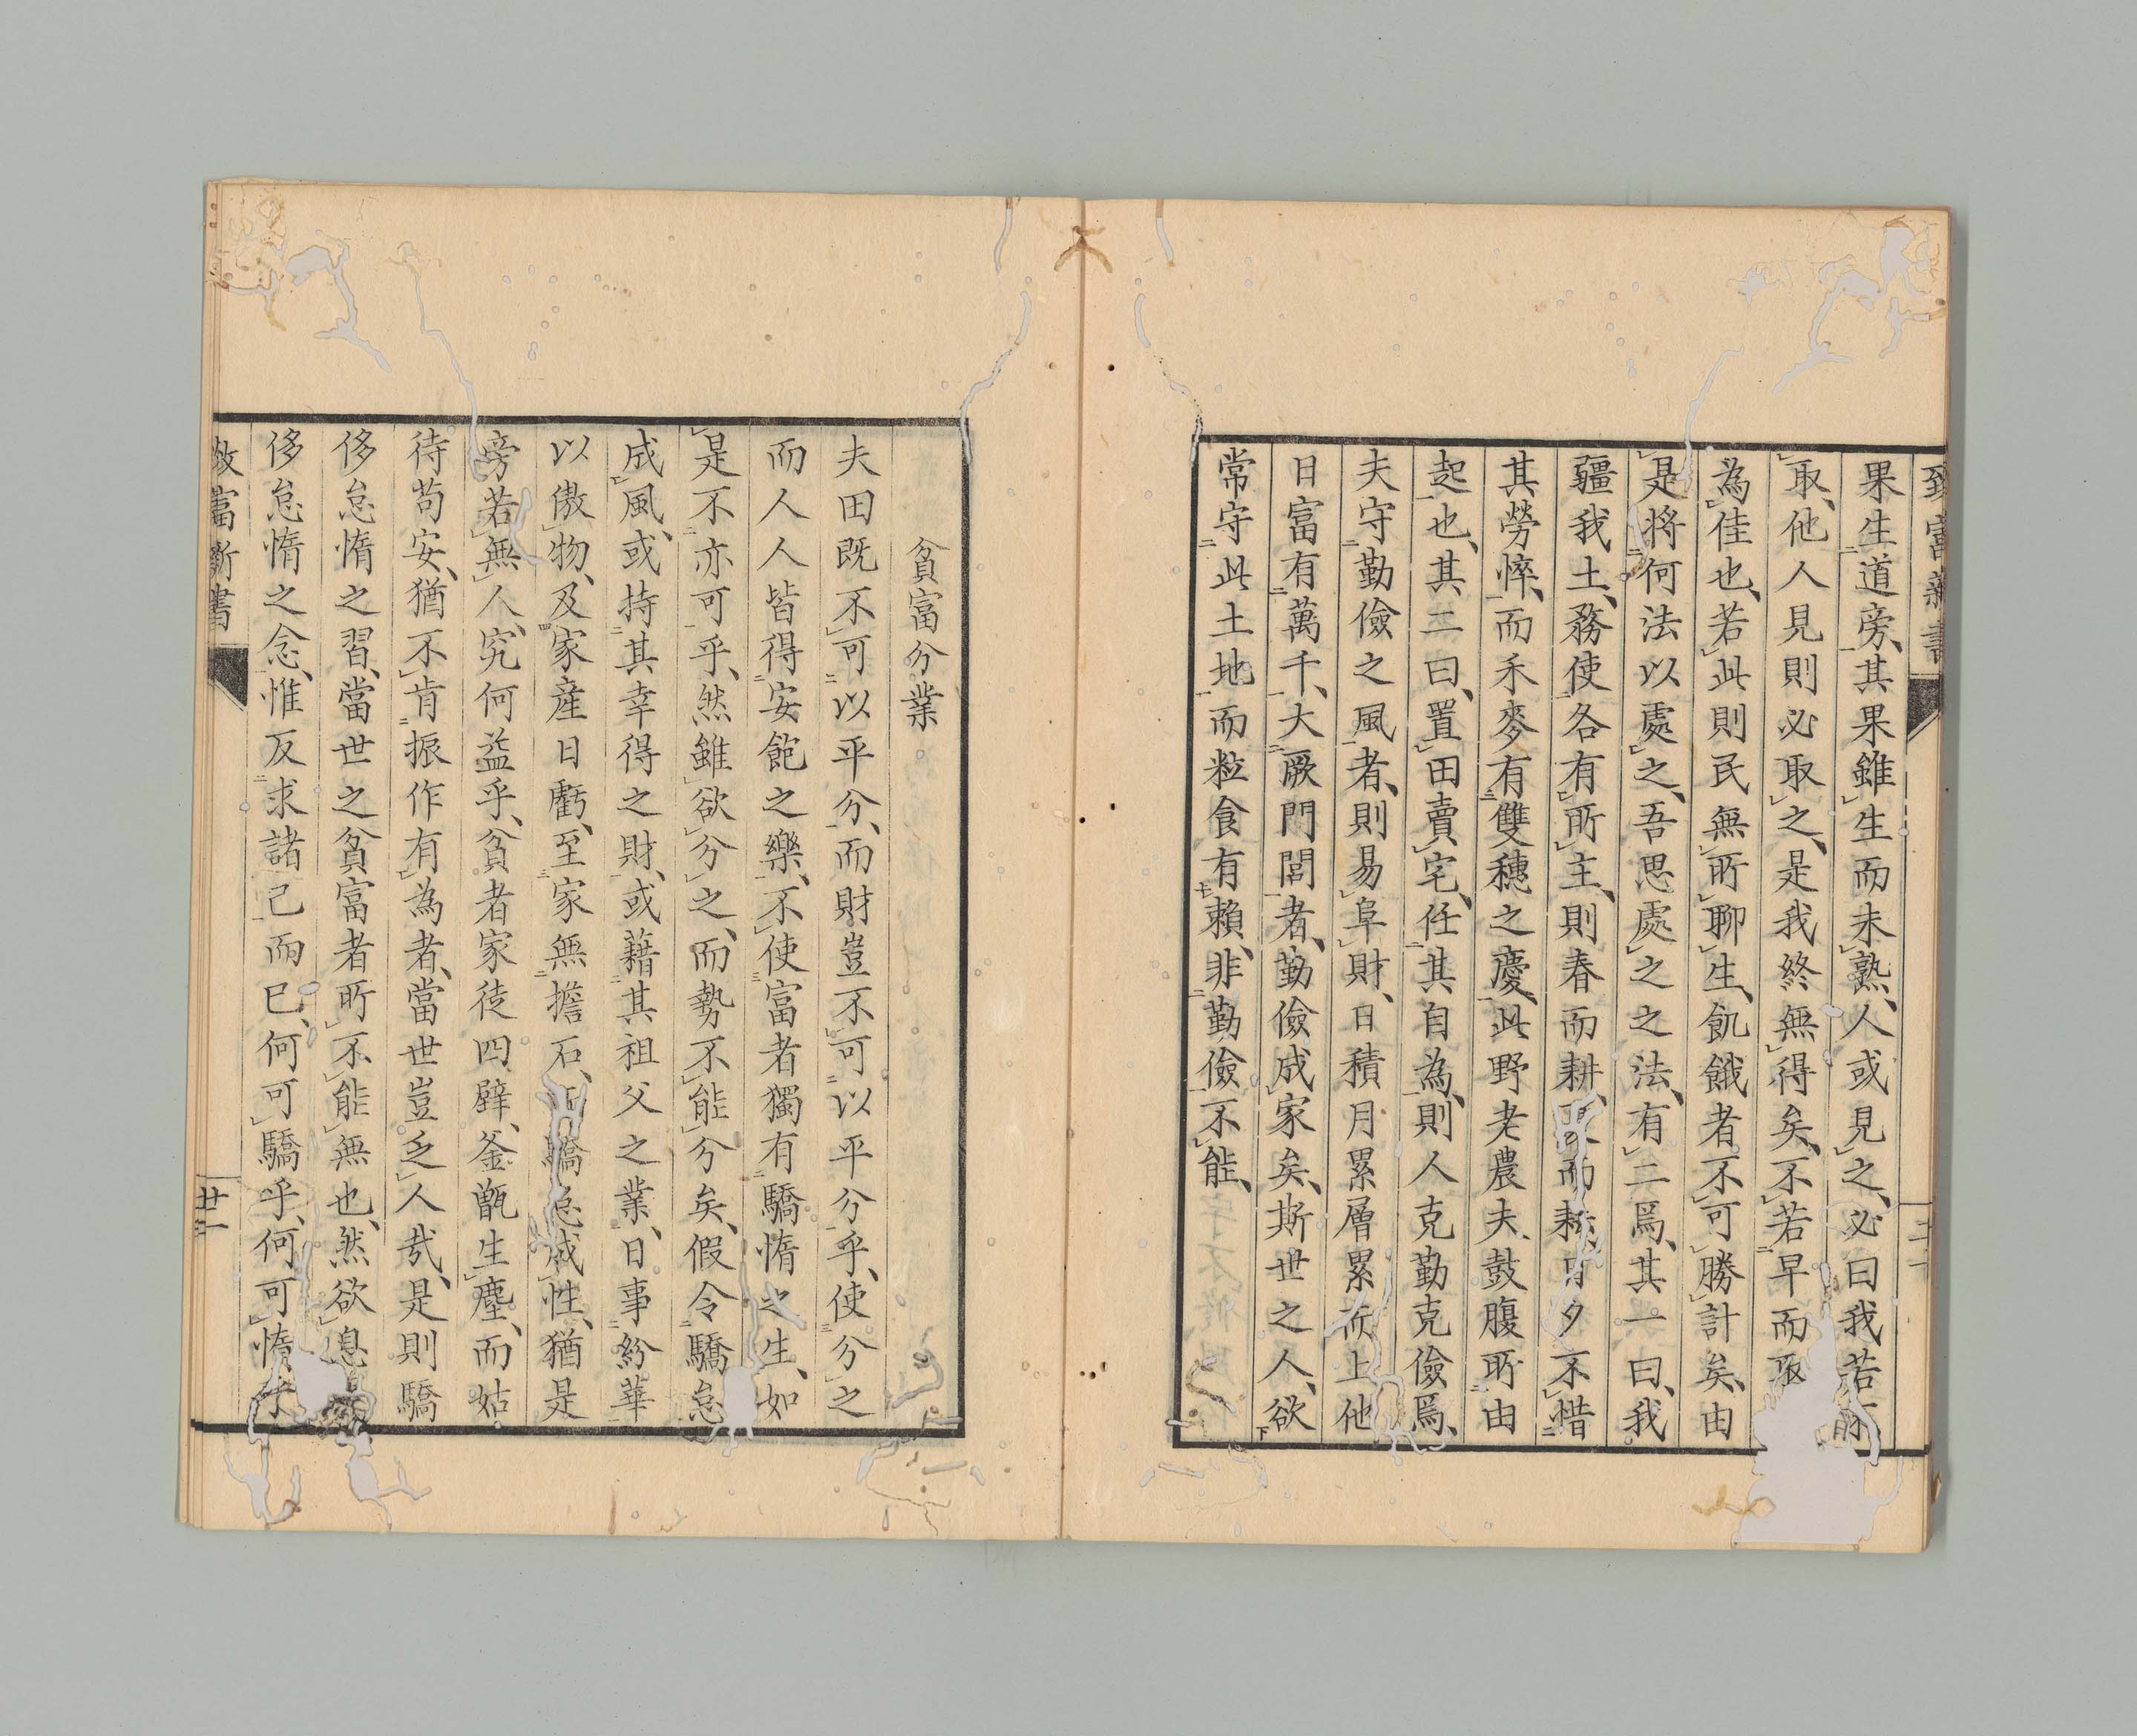 致富新書
果生道旁、其果雖生而未熟、人或見之、必曰我若不
取、他人見則必取之、是我終無得矣、不若早而取
為佳也、若此則民無所聊生、飢餓者不可勝計矣、由
是將何法以處之、吾思處之之法、有二焉、其一曰、我
疆我土、務使各有所主、則春而耕、夏而耘、日夕不惜
其勞悴、而禾麥有雙穗之慶、此野老農夫、鼓腹所由
起也、其二曰、置田賣宅、任其自為、則人克勤克儉焉、
夫守勤儉之風者、則易阜財、日積月累層累而上他
日富有萬千、大厥門閭者、勤儉成家矣、斯世之人、欲
常守此土地而粒食有賴、非勤儉不能、
貧富分業
夫田既不可以平分、而財豈不可以平分乎、使分之
而人人皆得安飽之樂、不使富者獨有驕惰之生、如
是不亦可乎、然雖欲分之、而勢不能分矣、假令驕怠
成風、或持其幸得之財、或藉其祖父之業、日事紛華
以傲物、及家產日虧、至家無擔石、而驕怠成性、猶是
旁若無人、究何益乎、貧者家徒四壁、釜甑生塵、而姑
待苟安、猶不肯振作有為者、當世豈乏人哉、是則驕
侈怠惰之習、當世之貧富者所不能無也、然欲息
侈怠惰之念、惟反求諸己而已、何可驕乎、何可惰乎
致富新書
廿一